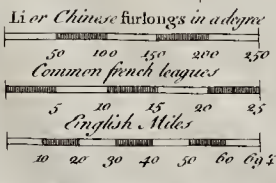 Li or Chinese furlongs in a degree
50 100 150 200 250
Common french leagues
5 10 15 20 25
English Miles
10 20 30 40 50 60 69½